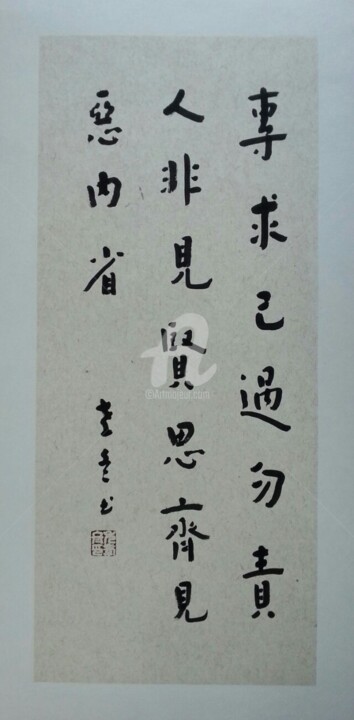 專求己過勿責
人非見賢思齊見
惡內省
©Artmajeur.com